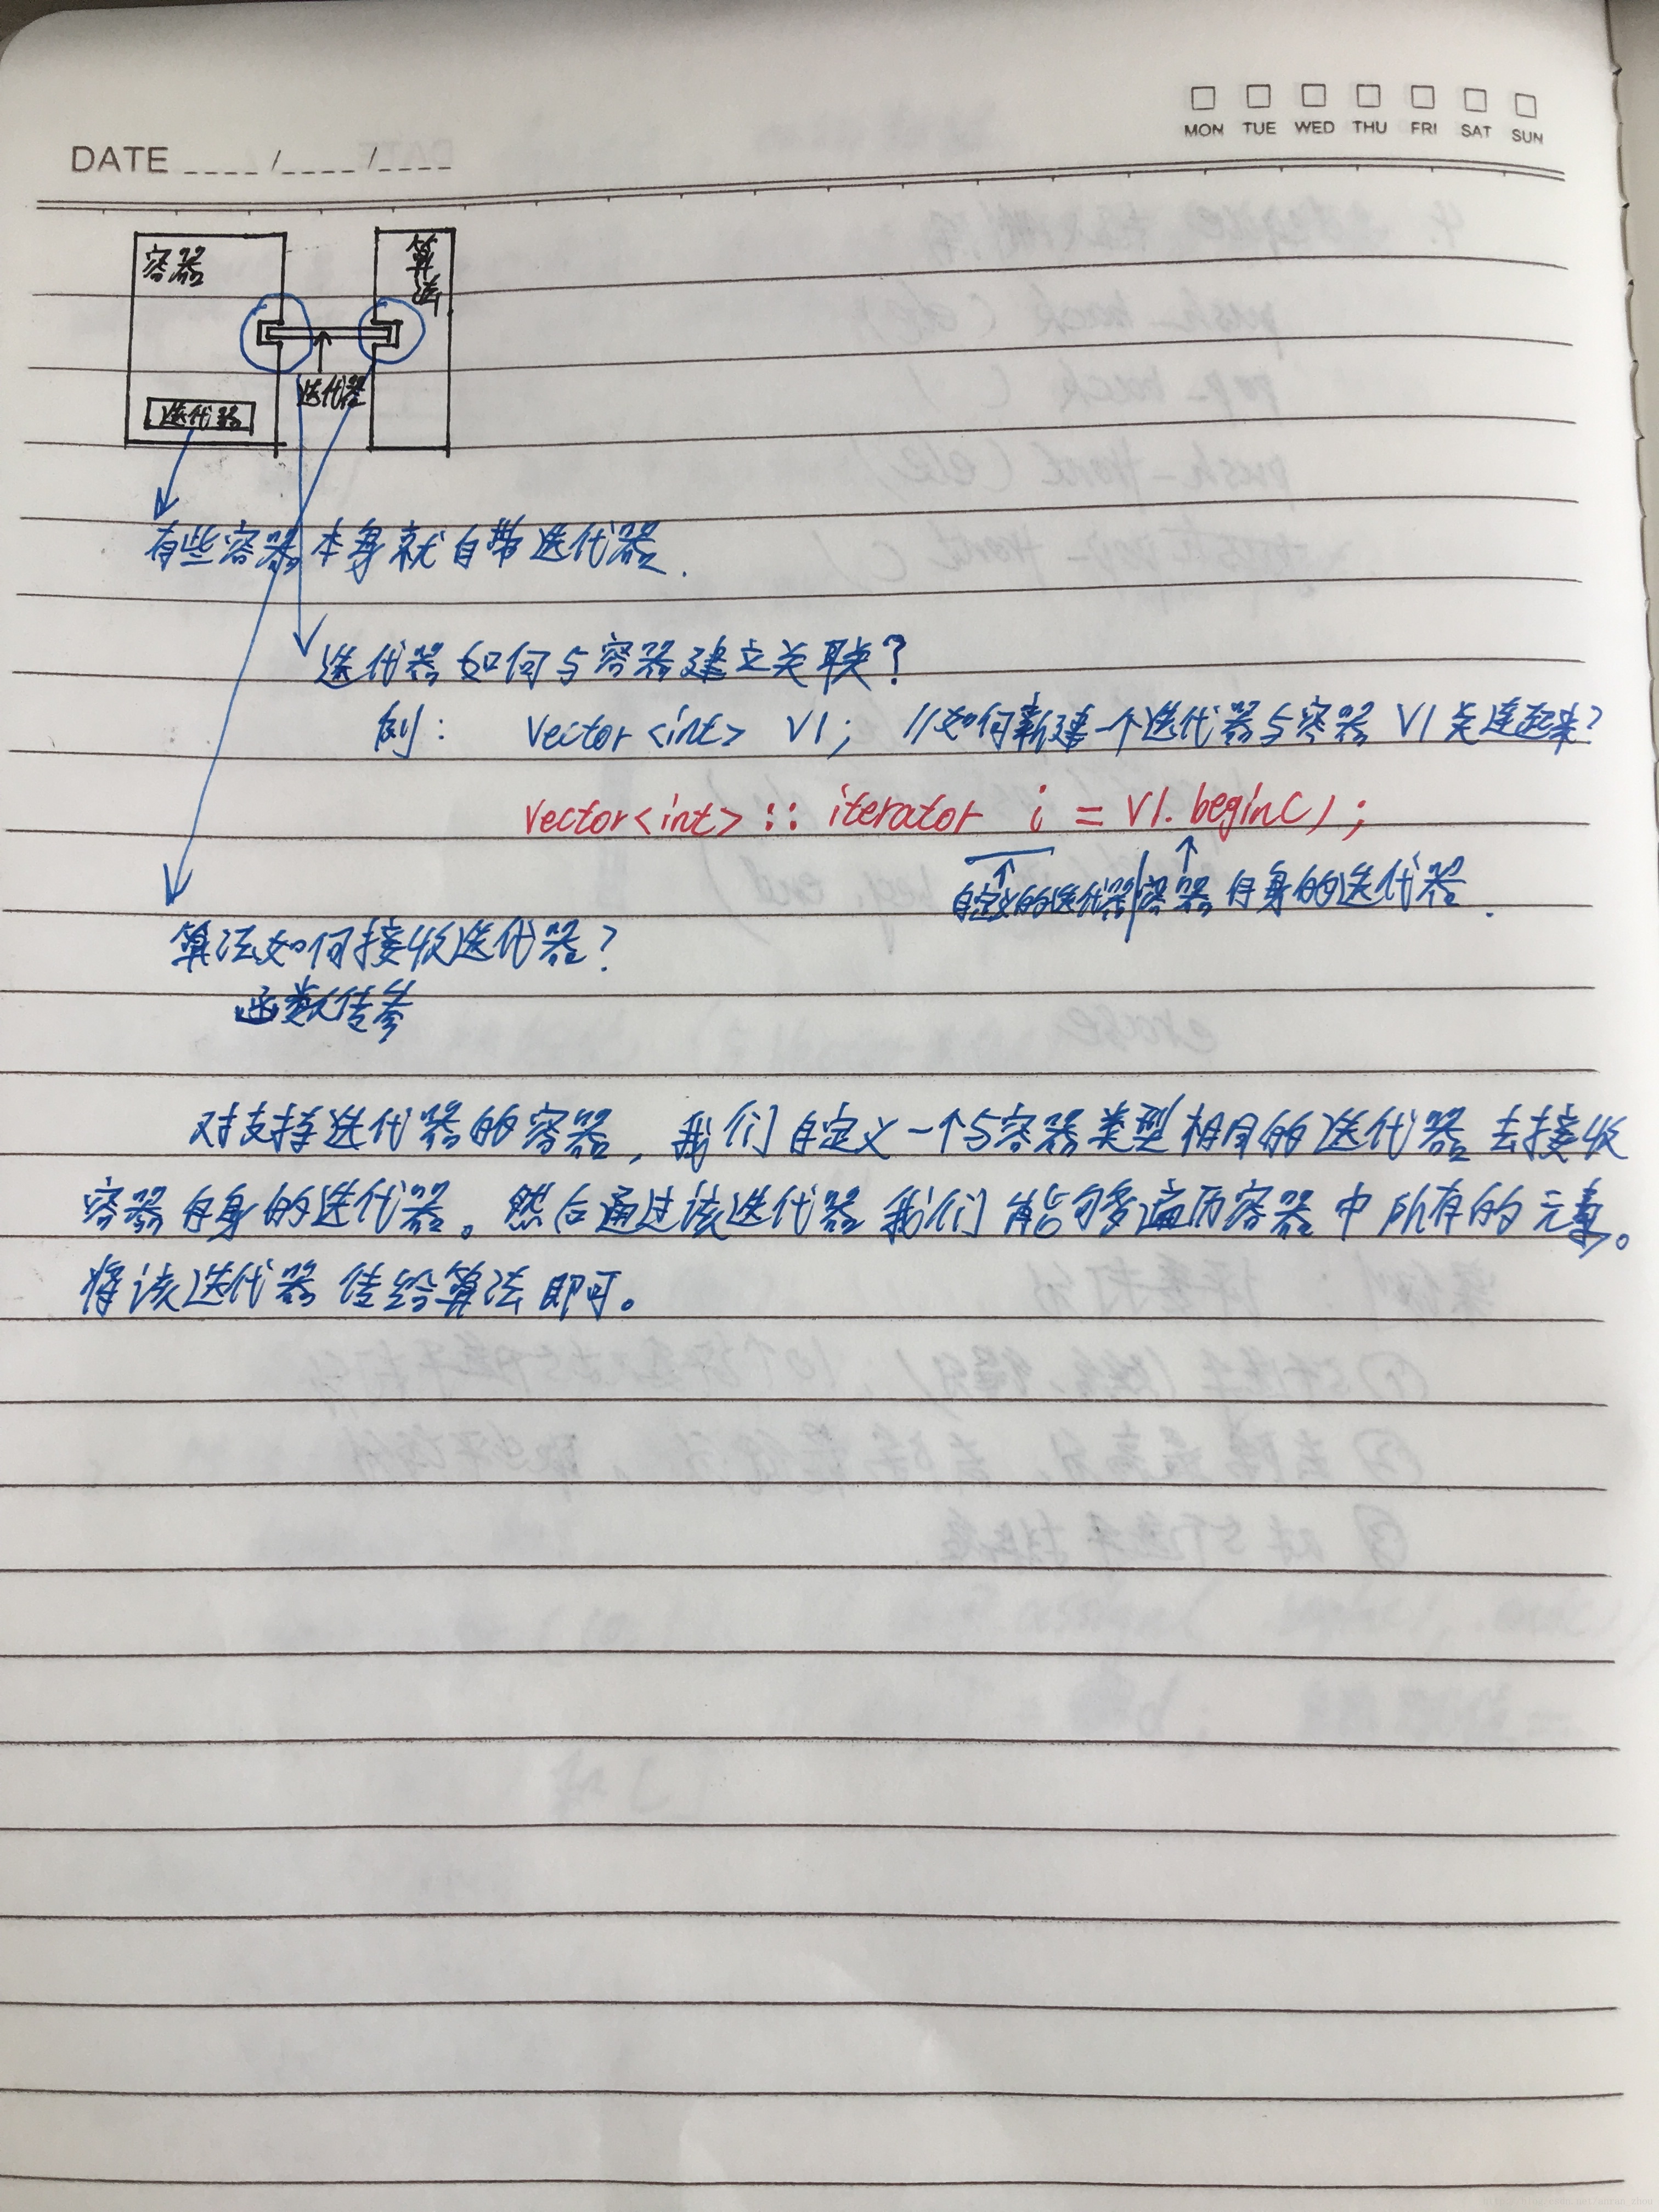 MON TUE WED THU FRI SAT SUN
DATE ____/____/____
容器
算法
迭代器
迭代器
有些容器本身就自带迭代器.
迭代器如何与容器建立关联?
例: Vector<int> V1; //如何新建一个迭代器与容器 V1 关连起来?
Vector<int> :: iterator i = V1.begin();
自定义的迭代器 容器自身的迭代器.
算法如何接收迭代器?
函数传参
对支持迭代器的容器, 我们自定义一个与容器类型相同的迭代器去接收
容器自身的迭代器。然后通过该迭代器我们能够遍历容器中所有的元素。
将该迭代器传给算法即可。